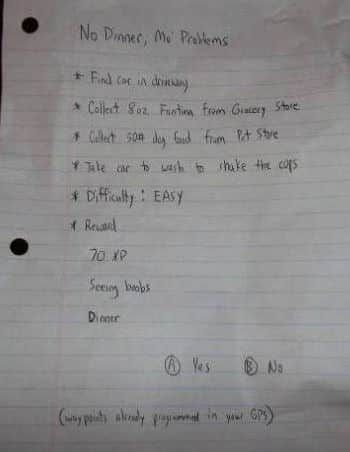 No Dinner, Mo' Problems
* Find car in driveway
* Collect 8oz. Fontina from Grocery Store
* Collect 50# dog food from Pet Store
* Take car to wash to shake the cops
* Difficulty: EASY
* Reward
70 XP
Seeing boobs
Dinner
Ⓐ Yes Ⓑ No
(waypoints already programmed in your GPS)